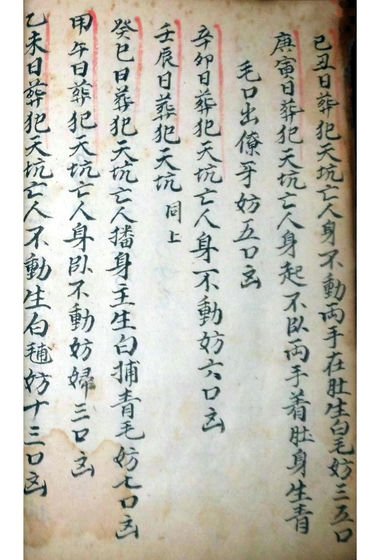 己丑日葬犯天坑亡人身不動両手在肚生白毛妨三五口
庚寅日葬犯天坑亡人身起不臥両手着肚身生青
毛口出僚牙妨五口凶
辛卯日葬犯天坑亡人身不動妨六口凶
壬辰日葬犯天坑同上
癸巳日葬犯天坑亡人播身主生白捕青毛妨七口凶
甲午日葬犯天坑亡人身臥不動妨婦三口凶
乙未日葬犯天坑亡人不動生白毛妨十三口凶